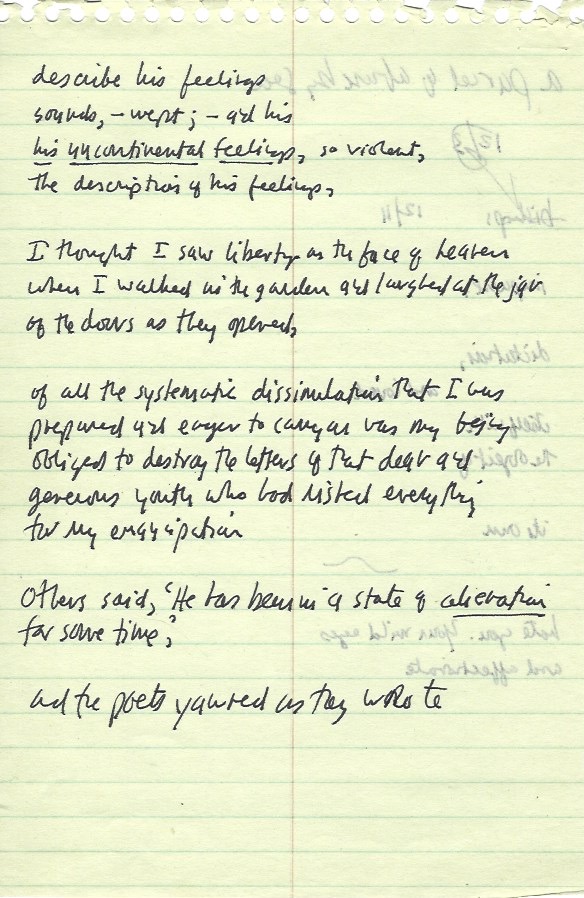 describe his feelings
sounds, – wept; – and his
his uncontinental feelings, so violent,
the description of his feelings,
I thought I saw liberty on the face of heaven
when I walked in the garden and laughed at the jar
of the doors as they opened,
of all the systematic dissimulation that I was
prepared and eager to carry on was my being
obliged to destroy the letters of that dear and
generous youth who had risked everything
for my emancipation
Others said, 'He has been in a state of alienation
for some time,'
and the poets yawned as they wrote